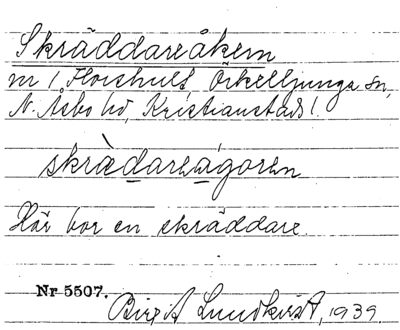 Skräddareåkern
nr 1 Florshult Örkelljunga sn,
N. Åsbo hd, Kristianstads l.
skrädareågoren
Här bor en skräddare
Nr 5507.
Birgit Lundkvist, 1939.